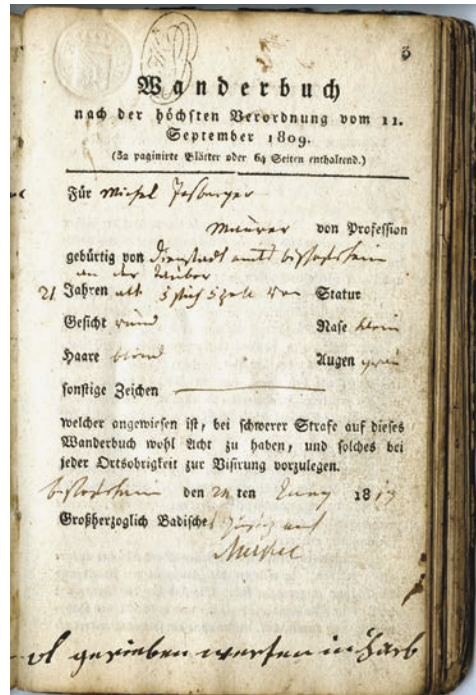 Wanderbuch
nach der höchsten Verordnung vom 11.
September 1809.
(32 paginirte Blätter oder 64 Seiten enthaltend.)
Für Michel
Maurer von Profession
gebürtig von Dienstadt amts bischofsheim
an der Tauber
21 Jahren alt 5 schuh 5 zoll Statur
Gesicht rund Nase klein
Haare blond Augen grau
sonstige Zeichen
welcher angewiesen ist, bei schwerer Strafe auf dieses
Wanderbuch wohl Acht zu haben, und solches bei
jeder Ortsobrigkeit zur Visirung vorzulegen.
bischofsheim den ten Juny 18
Großherzoglich Badisches
gerieben werden in